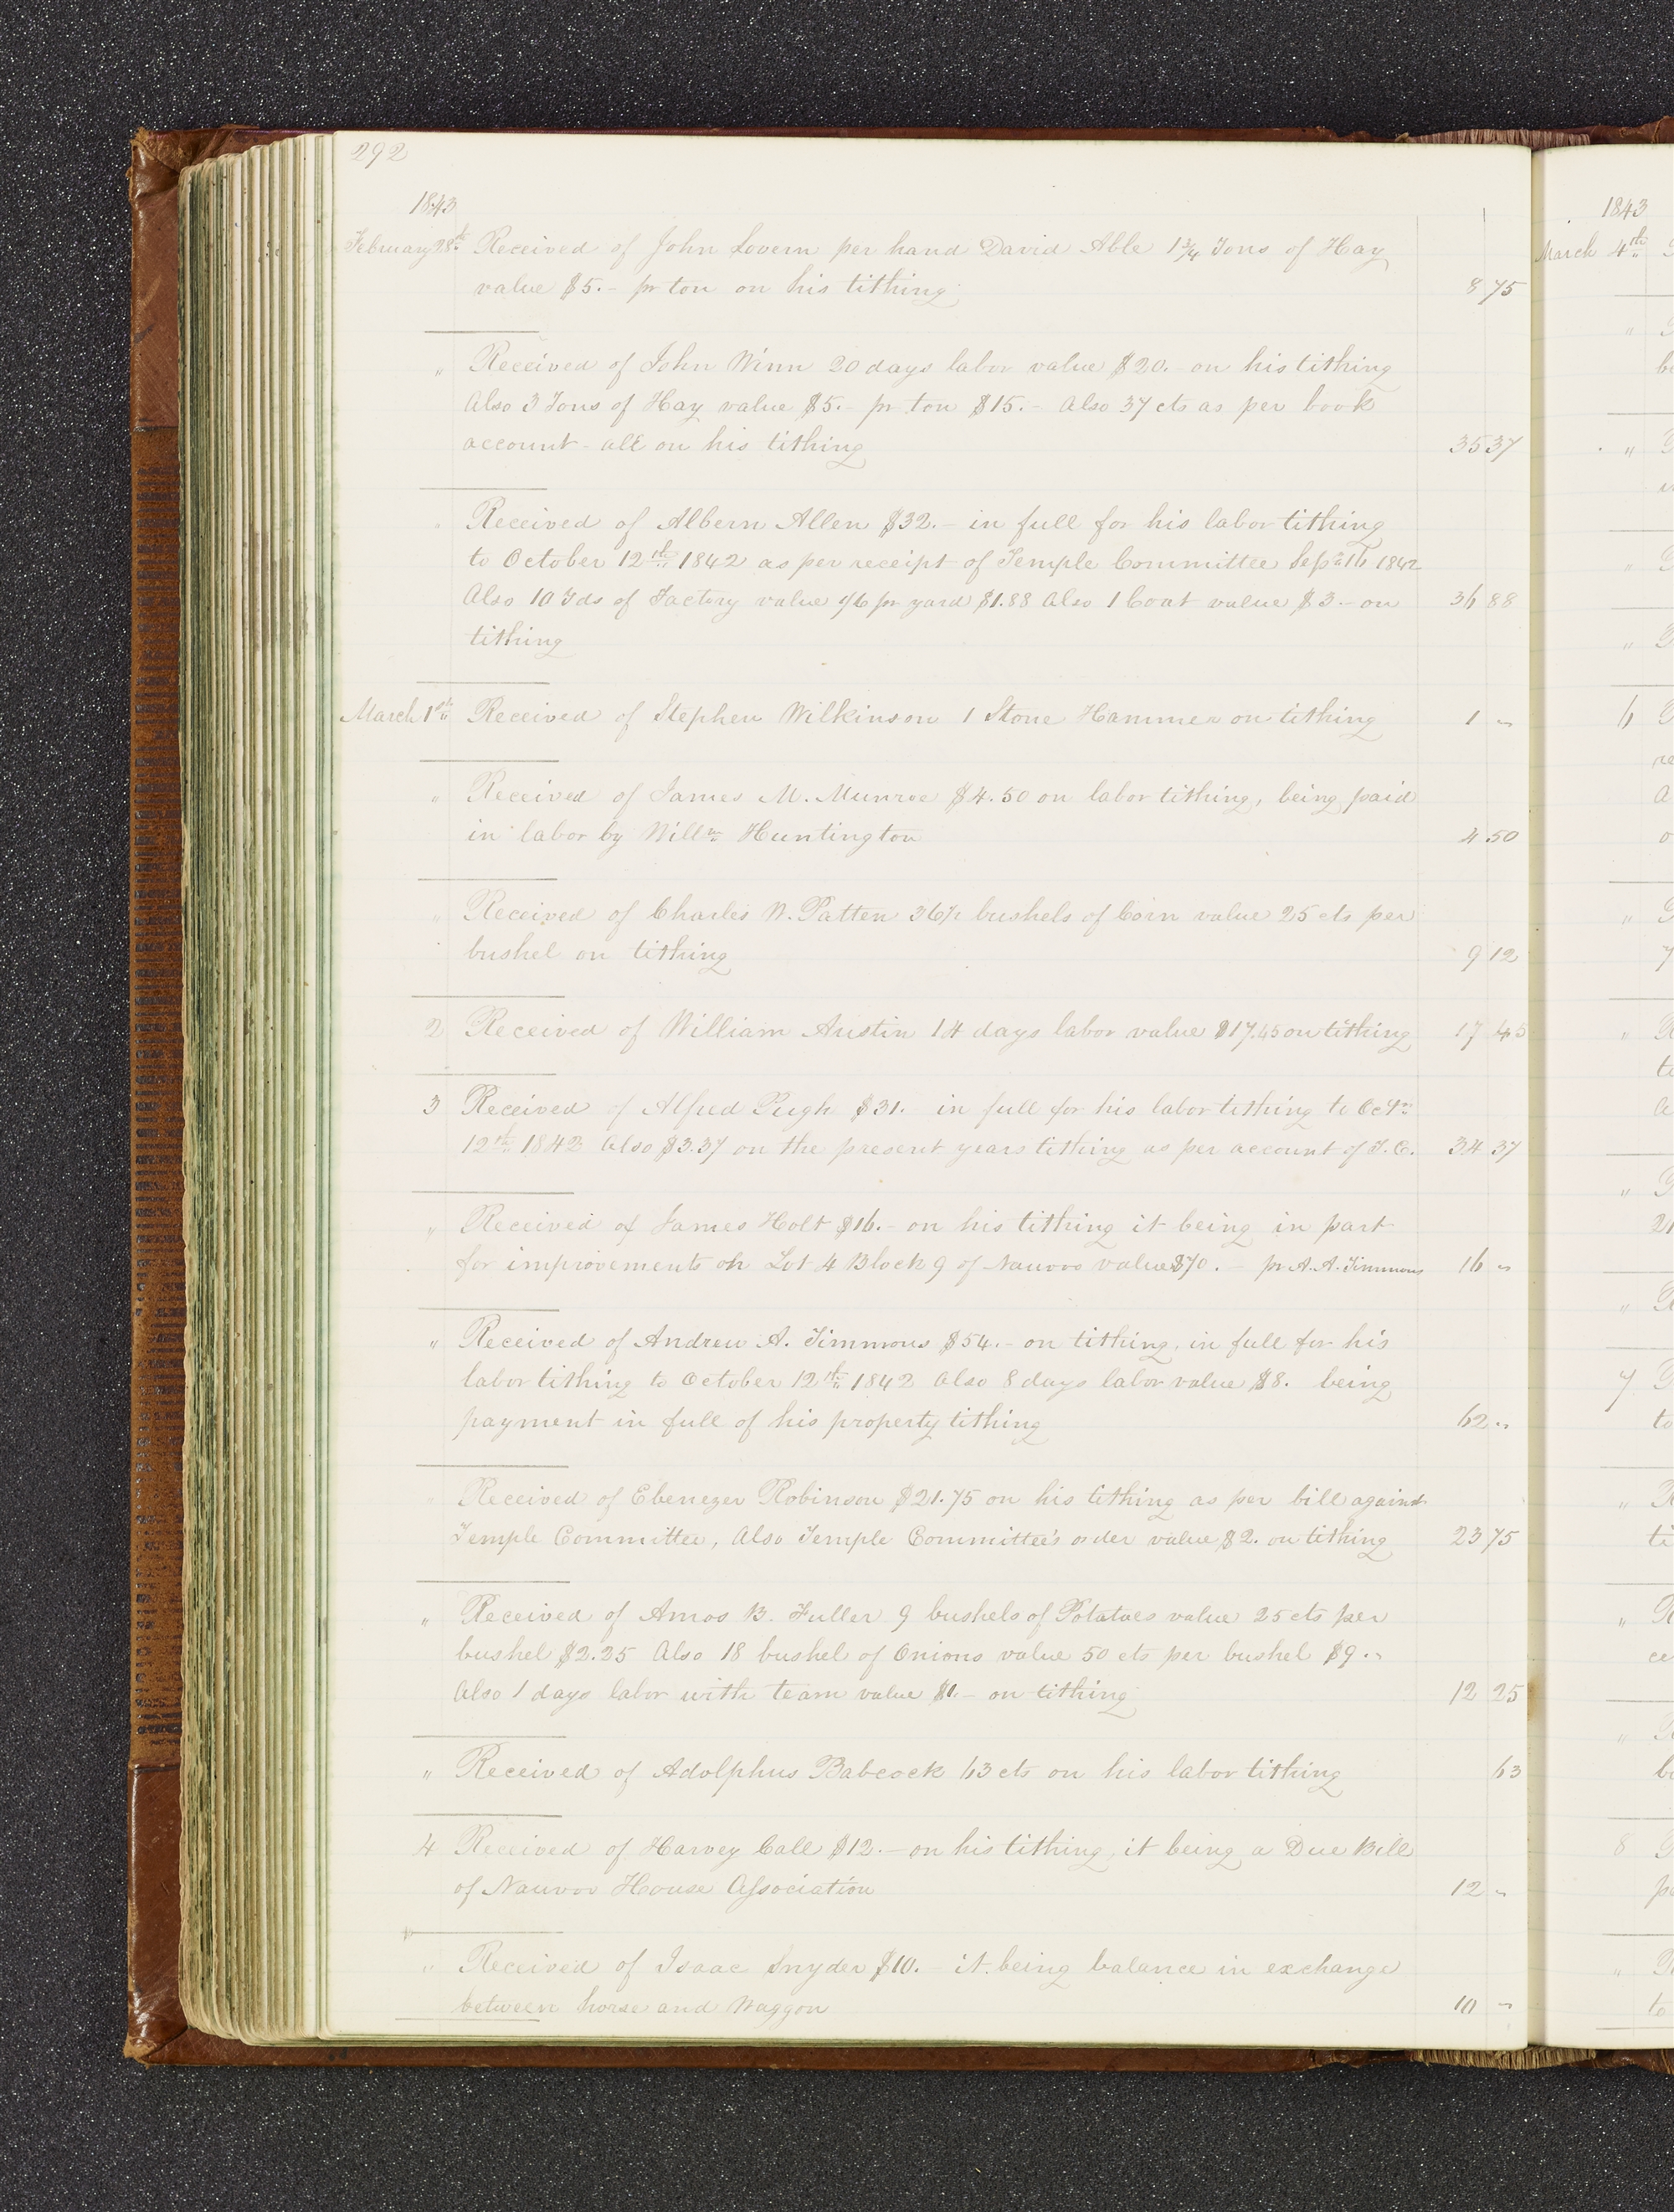 292
1843
February 28th Received of John Lovern per hand David Able 1 3/4 Tons of Hay
value $5.- pr ton on his tithing 8 75
" Received of John Winn 20 days labor value $20.- on his tithing
Also 3 Tons of Hay value $5.- pr ton $15.- Also 37 cts as per book
account - all on his tithing 35 37
" Received of Albern Allen $32.- in full for his labor tithing
to October 12th 1842 as per receipt of Temple Committee Sept 16 1842
Also 10 Yds of Factory value 1/6 pr yard $1.88 Also 1 Coat value $3.- on 36 88
tithing
March 1st Received of Stephen Wilkinson 1 Stone Hammer on tithing 1 "
" Received of James M. Munroe $4.50 on labor tithing, being paid
in labor by Willm Huntington 4 50
" Received of Charles W. Patten 36 1/2 bushels of Corn value 25 cts per
bushel on tithing 9 12
2 Received of William Austin 14 days labor value $17.45 on tithing 17 45
3 Received of Alfred Pugh $31. in full for his labor tithing to Octr
12th 1842 Also $3.37 on the present years tithing as per account of T. C. 34 37
" Received of James Holt $16.- on his tithing it being in part
for improvements on Lot 4 Block 9 of Nauvoo value $70.- pr A. A. Timmons 16 "
" Received of Andrew A. Timmons $54.- on tithing, in full for his
labor tithing to October 12th 1842 Also 8 days labor value $8. being
payment in full of his property tithing 62 "
" Received of Ebenezer Robinson $21.75 on his tithing as per bill against
Temple Committee, Also Temple Committee's order value $2. on tithing 23 75
" Received of Amos B. Fuller 9 bushels of Potatoes value 25 cts per
bushel $2.25 Also 18 bushel of Onions value 50 cts per bushel $9."
Also 1 days labor with team value $1.- on tithing 12 25
" Received of Adolphus Babcock 63 cts on his labor tithing 63
4 Received of Harvey Call $12.- on his tithing, it being a Due Bill
of Nauvoo House Association 12 "
" Received of Isaac Snyder $10.- it being balance in exchange
between horse and Waggon 10 "
1843
March 4th
"
"
"
"
6
"
"
"
"
7
to
"
"
"
8
"
to